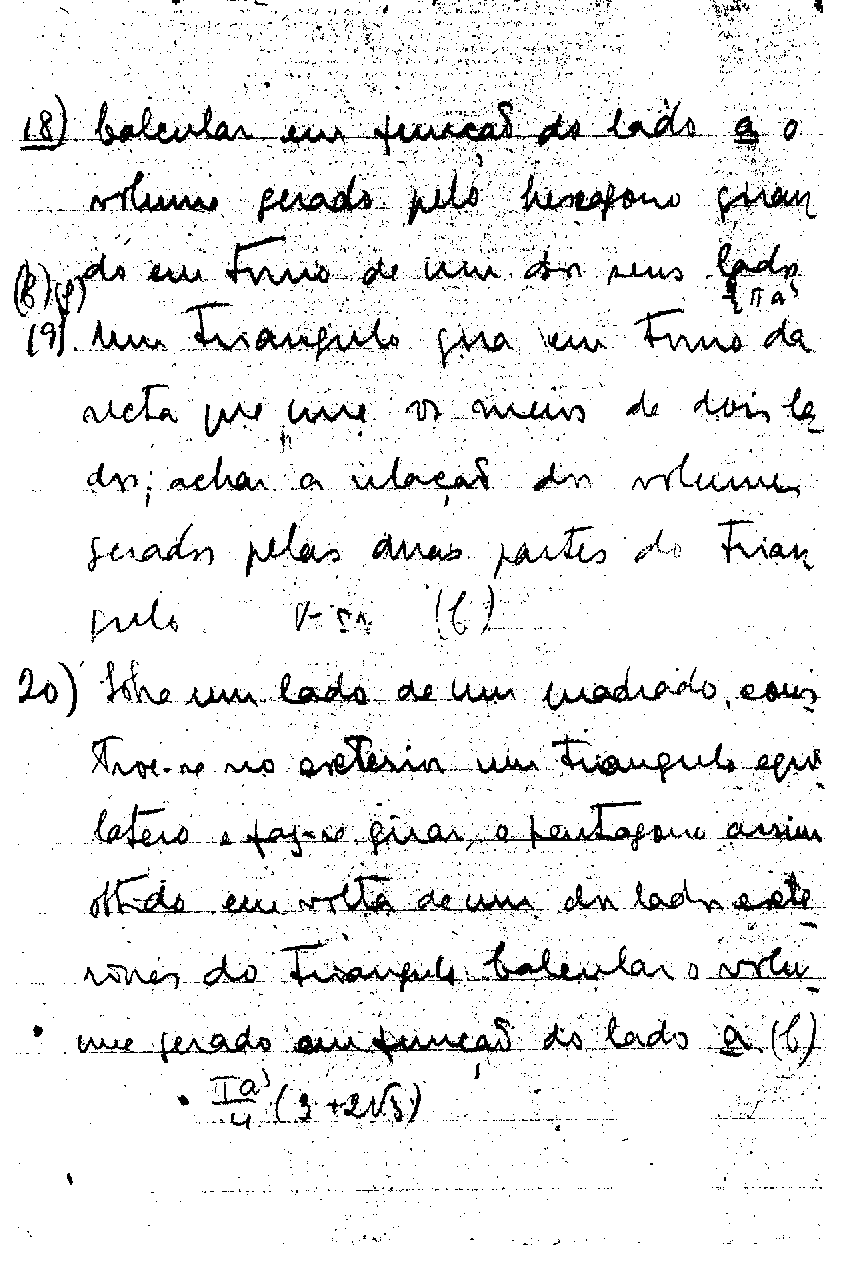 18) Calcular em função do lado a o
volume gerado pelo hexagono giran
do em torno de um dos seus lados
(b) (g)
πa³
19). Um Triangulo gira em torno da
recta que une os meios de dois la
dos; achar a relação dos volumes
gerados pelas duas partes do Trian
gulo (b)
20) Sobre um lado de um quadrado, cons
troe-se no exterior um triangulo equi
latero e faz-se girar, o pentagono assim
obtido em volta de um dos lados exte
riores do Triangulo. Calcular o volu
me gerado em função do lado a (b)
πa³/4 (3+2√3)